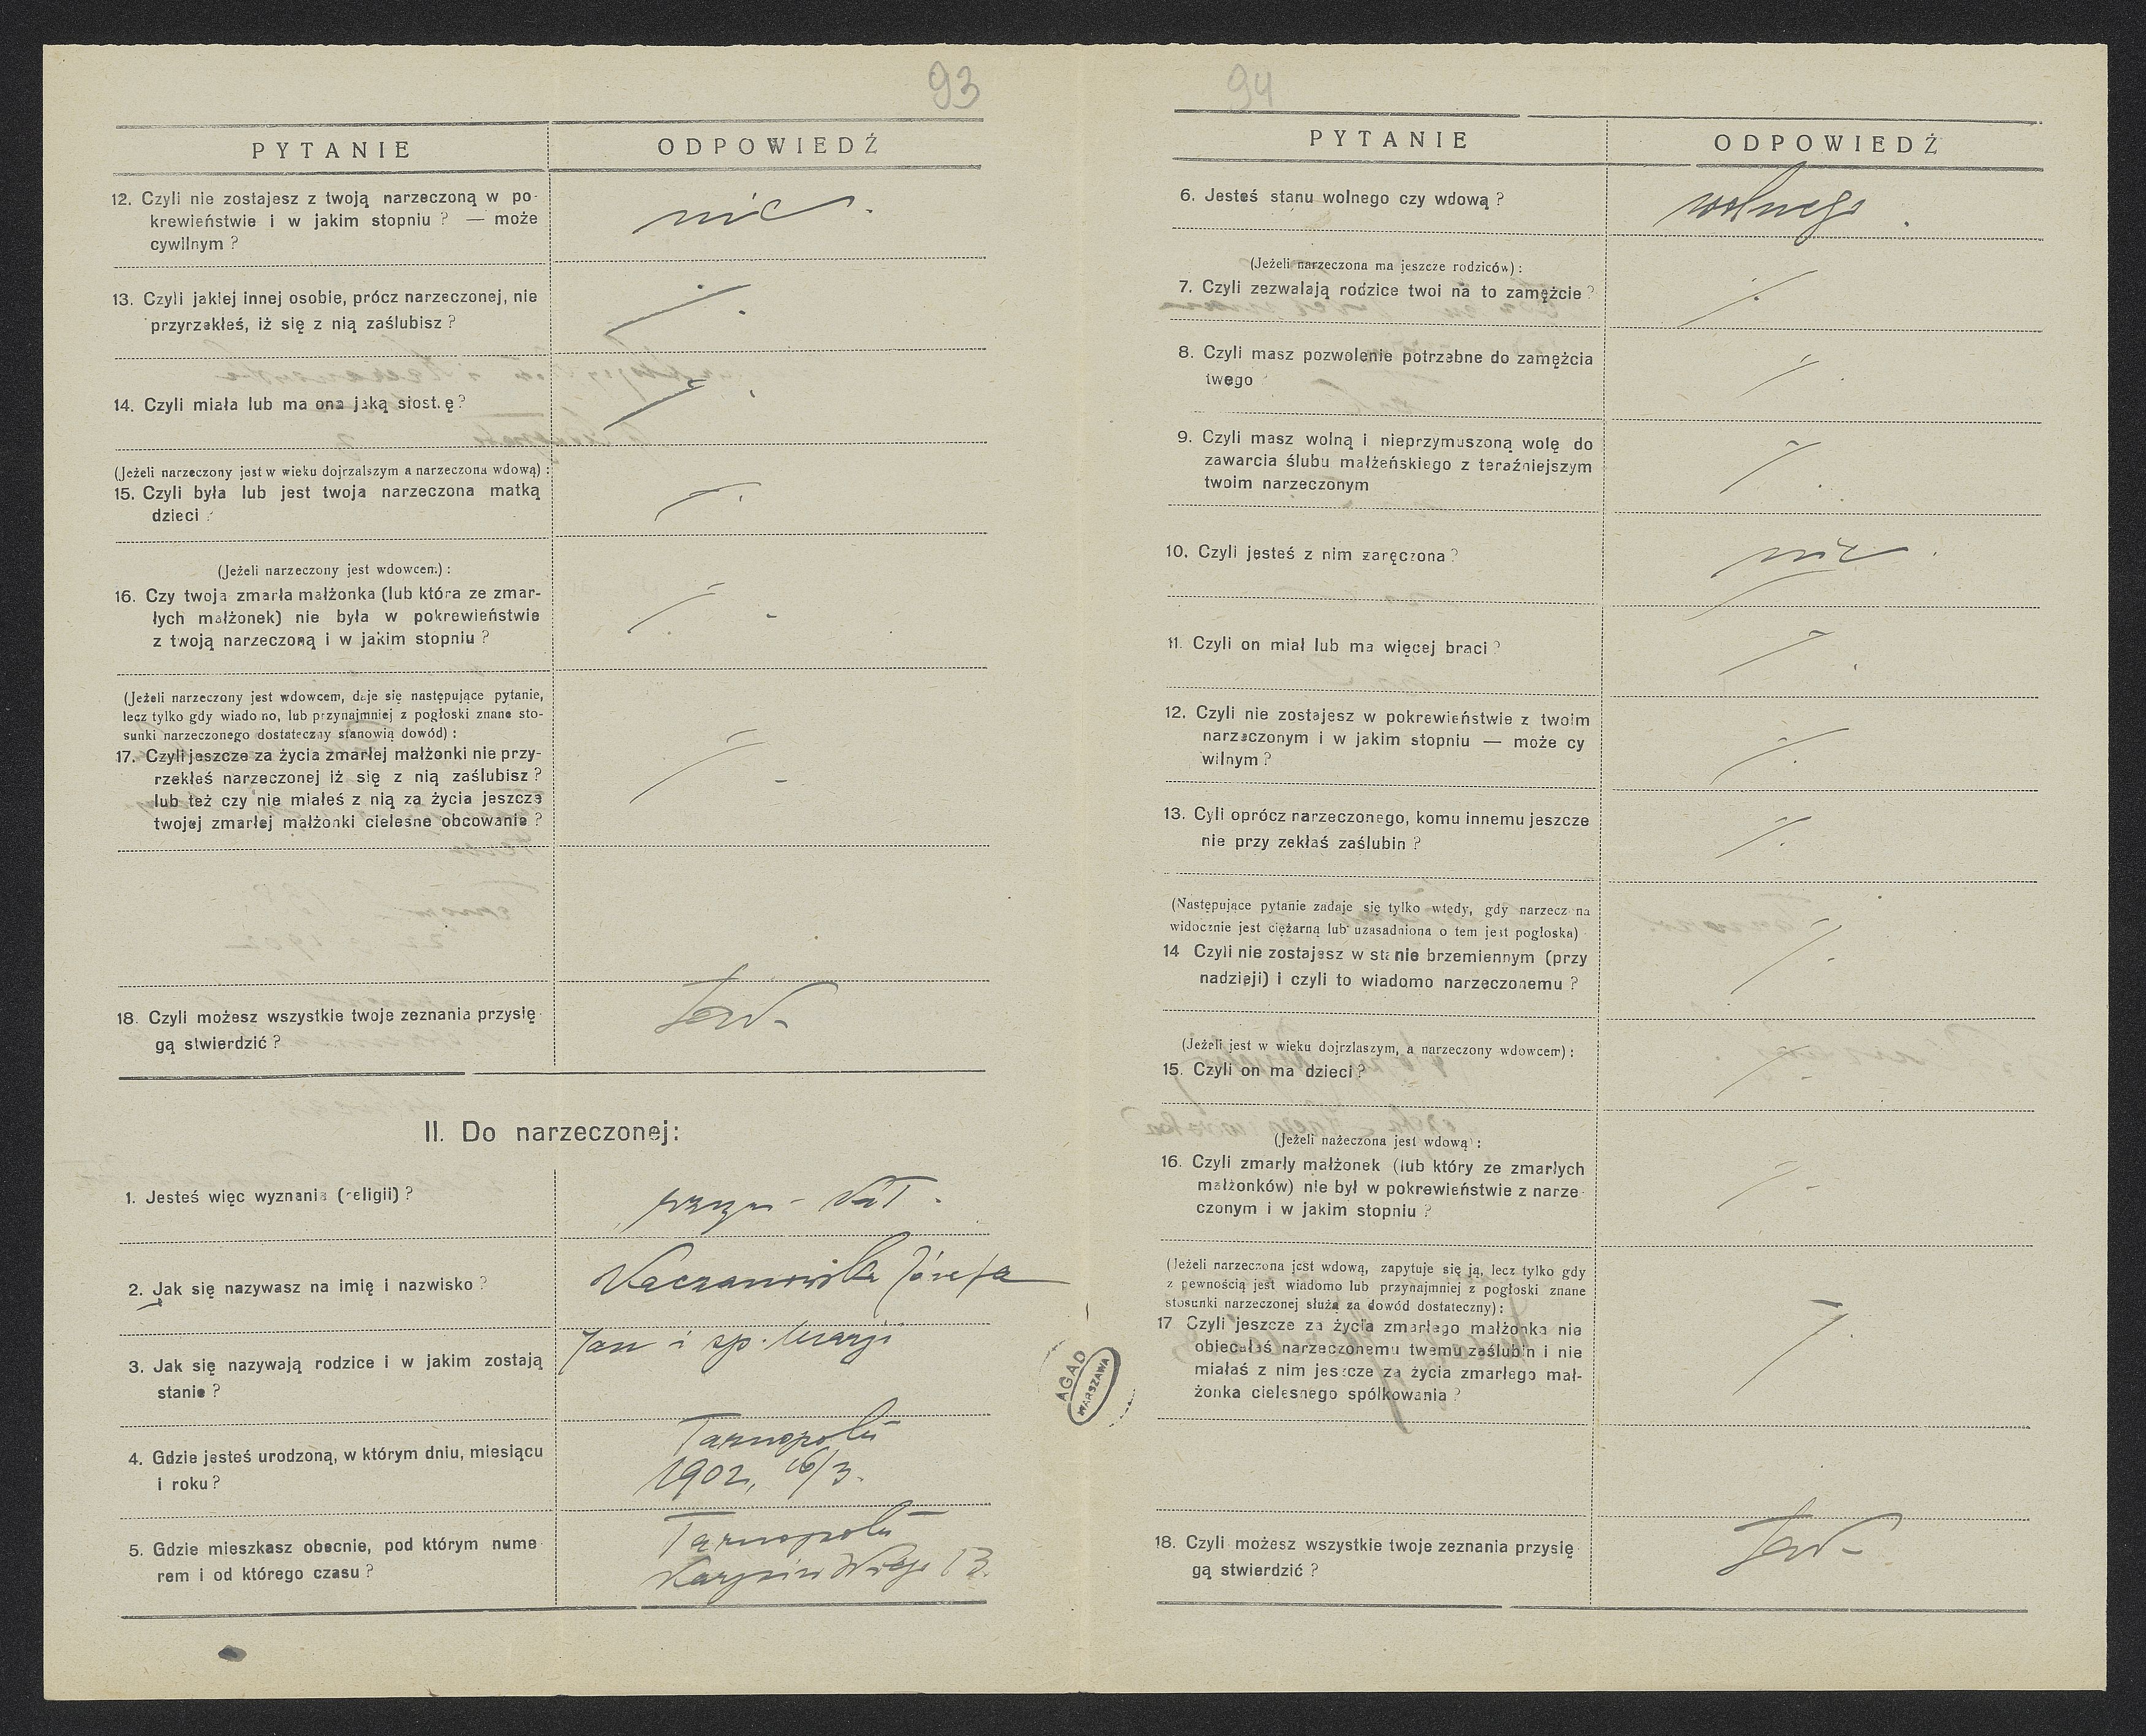 93
PYTANIE
ODPOWIEDŹ
12. Czyli nie zostajesz z twoją narzeczoną w po-
krewieństwie i w jakim stopniu? — może
cywilnym?
nie.
13. Czyli jakiej innej osobie, prócz narzeczonej, nie
przyrzekłeś, iż się z nią zaślubisz?
14. Czyli miała lub ma ona jaką siostrę?
(Jeżeli narzeczony jest w wieku dojrzalszym a narzeczona wdową):
15. Czyli była lub jest twoja narzeczona matką
dzieci?
(Jeżeli narzeczony jest wdowcem):
16. Czy twoja zmarła małżonka (lub która ze zmar-
łych małżonek) nie była w pokrewieństwie
z twoją narzeczoną i w jakim stopniu?
(Jeżeli narzeczony jest wdowcem, daje się następujące pytanie,
lecz tylko gdy wiadomo, lub przynajmniej z pogłoski znane sto-
sunki narzeczonego dostateczny stanowią dowód):
17. Czyli jeszcze za życia zmarłej małżonki nie przy-
rzekłeś narzeczonej iż się z nią zaślubisz?
lub też czy nie miałeś z nią za życia jeszcze
twojej zmarłej małżonki cielesne obcowanie?
18. Czyli możesz wszystkie twoje zeznania przysię-
gą stwierdzić?
II. Do narzeczonej:
1. Jesteś więc wyznania (religii)?
rzym-kat.
2. Jak się nazywasz na imię i nazwisko?
Kaczanowska Józefa
3. Jak się nazywają rodzice i w jakim zostają
stanie?
Jan i śp. Marji
4. Gdzie jesteś urodzoną, w którym dniu, miesiącu
i roku?
Tarnopolu
1902, 16/3.
5. Gdzie mieszkasz obecnie, pod którym nume-
rem i od którego czasu?
Tarnopolu
13.
AGAD
WARSZAWA
94
PYTANIE
ODPOWIEDŹ
6. Jesteś stanu wolnego czy wdową?
wolnego.
(Jeżeli narzeczona ma jeszcze rodziców):
7. Czyli zezwalają rodzice twoi na to zamęźcie?
8. Czyli masz pozwolenie potrzebne do zamęźcia
twego
9. Czyli masz wolną i nieprzymuszoną wolę do
zawarcia ślubu małżeńskiego z teraźniejszym
twoim narzeczonym
10. Czyli jesteś z nim zaręczona?
nie.
11. Czyli on miał lub ma więcej braci?
12. Czyli nie zostajesz w pokrewieństwie z twoim
narzeczonym i w jakim stopniu — może cy
wilnym?
13. Cyli oprócz narzeczonego, komu innemu jeszcze
nie przy zekłaś zaślubin?
(Następujące pytanie zadaje się tylko wtedy, gdy narzecz na
widocznie jest ciężarną lub uzasadniona o tem jest pogłoska)
14 Czyli nie zostajesz w stanie brzemiennym (przy
nadzieji) i czyli to wiadomo narzeczonemu?
(Jeżeli jest w wieku dojrzlaszym, a narzeczony wdowcem):
15. Czyli on ma dzieci?
(Jeżeli nażeczona jest wdową):
16. Czyli zmarły małżonek (lub który ze zmarłych
małżonków) nie był w pokrewieństwie z narze-
czonym i w jakim stopniu?
(Jeżeli narzeczona jest wdową, zapytuje się ją, lecz tylko gdy
z pewnością jest wiadomo lub przynajmniej z pogłoski znane
stosunki narzeczonej służą za dowód dostateczny):
17 Czyli jeszcze za życia zmarłego małżonka nie
obiecałaś narzeczonemu twemu zaślubin i nie
miałaś z nim jeszcze za życia zmarłego mał-
żonka cielesnego spółkowania?
18. Czyli możesz wszystkie twoje zeznania przysię
gą stwierdzić?